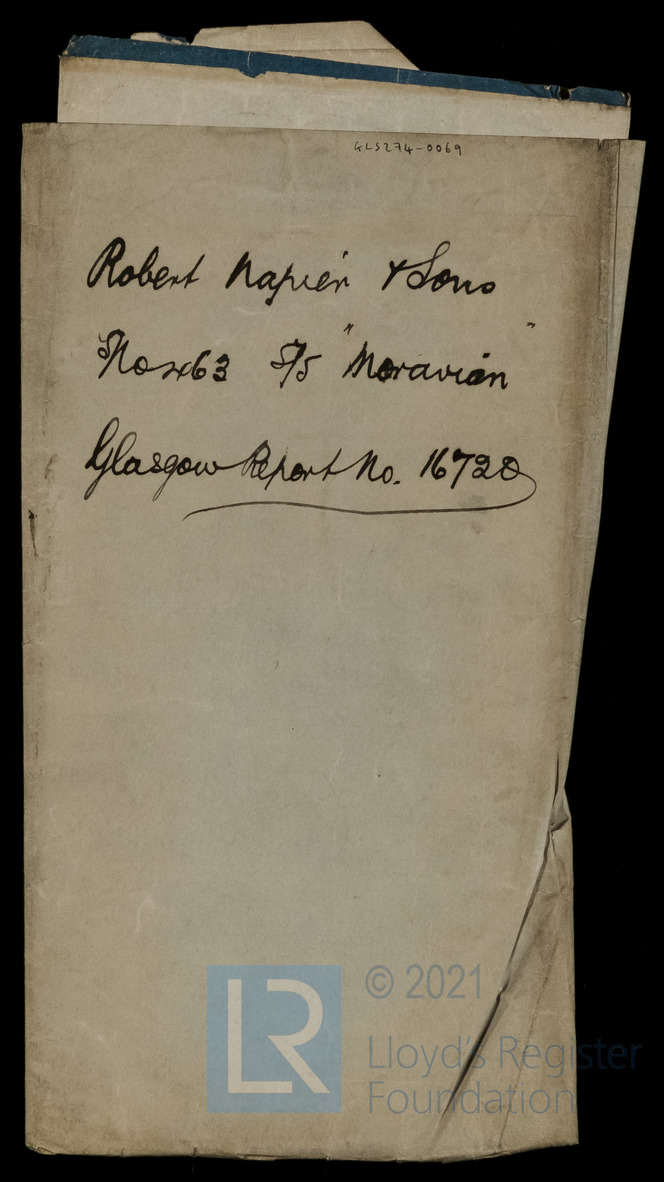 GLS274-0069
Robert Napier & Sons
No 463 S/S "Moravian"
Glasgow Report No. 16728
LR
© 2021
Lloyd's Register
Foundation